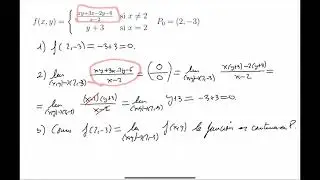 f(x,y) = { (xy+3x-2y-6)/(x-2) si x ≠ 2   P₀ = (2,-3)
y+3 si x = 2
1) f(2,-3) = -3+3 = 0.
2) lim (x,y)→(2,-3) (xy+3x-2y-6)/(x-2) = (0/0) = lim (x,y)→(2,-3) (x(y+3)-2(y+3))/(x-2) =
= lim (x,y)→(2,-3) ((x-2)(y+3))/(x-2) = lim (x,y)→(2,-3) y+3 = -3+3 = 0.
3) Como f(2,-3) = lim (x,y)→(2,-3) f(x,y) la función es continua en P.